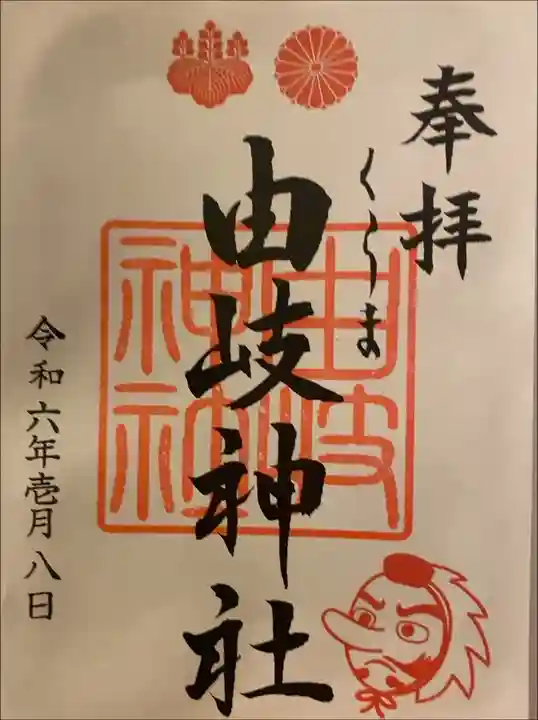 奉拝
くらま
由岐神社
由岐神社
令和六年壱月八日